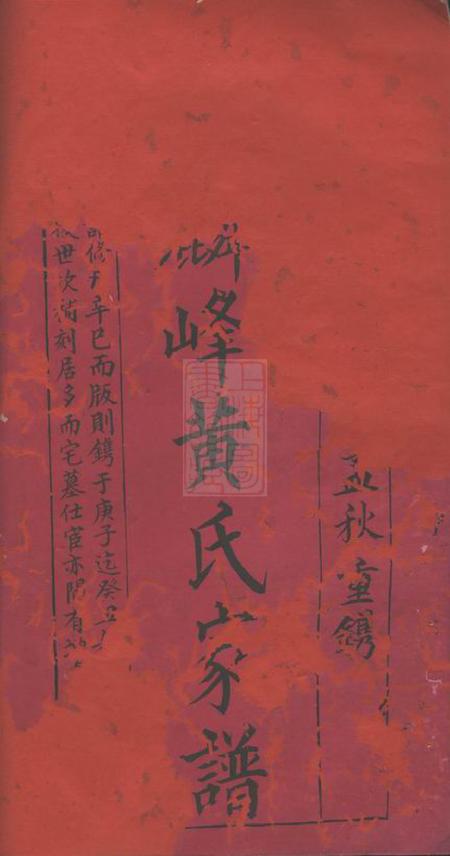 秋重鐫
峰黄氏家譜
修于辛巳而版則鐫于庚子迄癸丑
世次添刻居多而宅墓仕宦亦間有